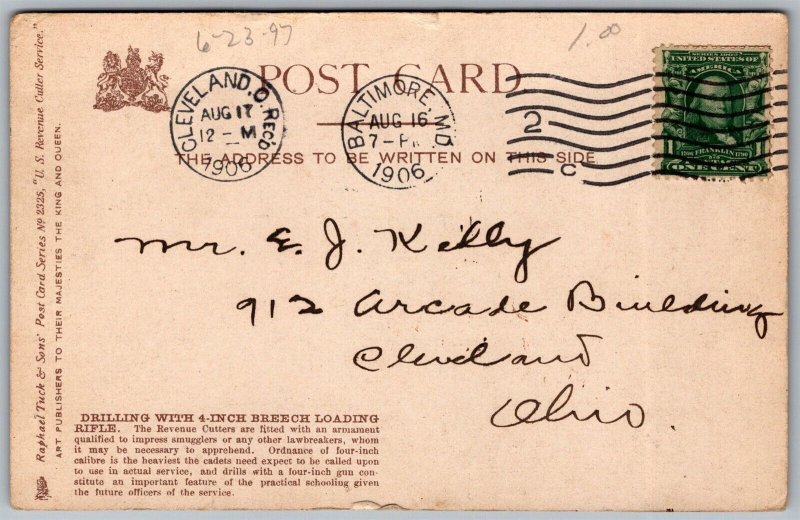 6-23-97
1.00
POST CARD
THE ADDRESS TO BE WRITTEN ON THIS SIDE
CLEVELAND, O. REC'D
AUG 17
12-M
1906
BALTIMORE, MD.
AUG 16
7-P
1906
2
C
SERIES 1902
UNITED STATES OF
AMERICA
1 FRANKLIN 1790
ONE CENT
Mr. E. J. Kelly
912 Arcade Building
Cleveland
Ohio.
Raphael Tuck & Sons' Post Card Series No 2325, "U. S. Revenue Cutter Service."
ART PUBLISHERS TO THEIR MAJESTIES THE KING AND QUEEN.
DRILLING WITH 4-INCH BREECH LOADING
RIFLE. The Revenue Cutters are fitted with an armament
qualified to impress smugglers or any other lawbreakers, whom
it may be necessary to apprehend. Ordnance of four-inch
calibre is the heaviest the cadets need expect to be called upon
to use in actual service, and drills with a four-inch gun con-
stitute an important feature of the practical schooling given
the future officers of the service.